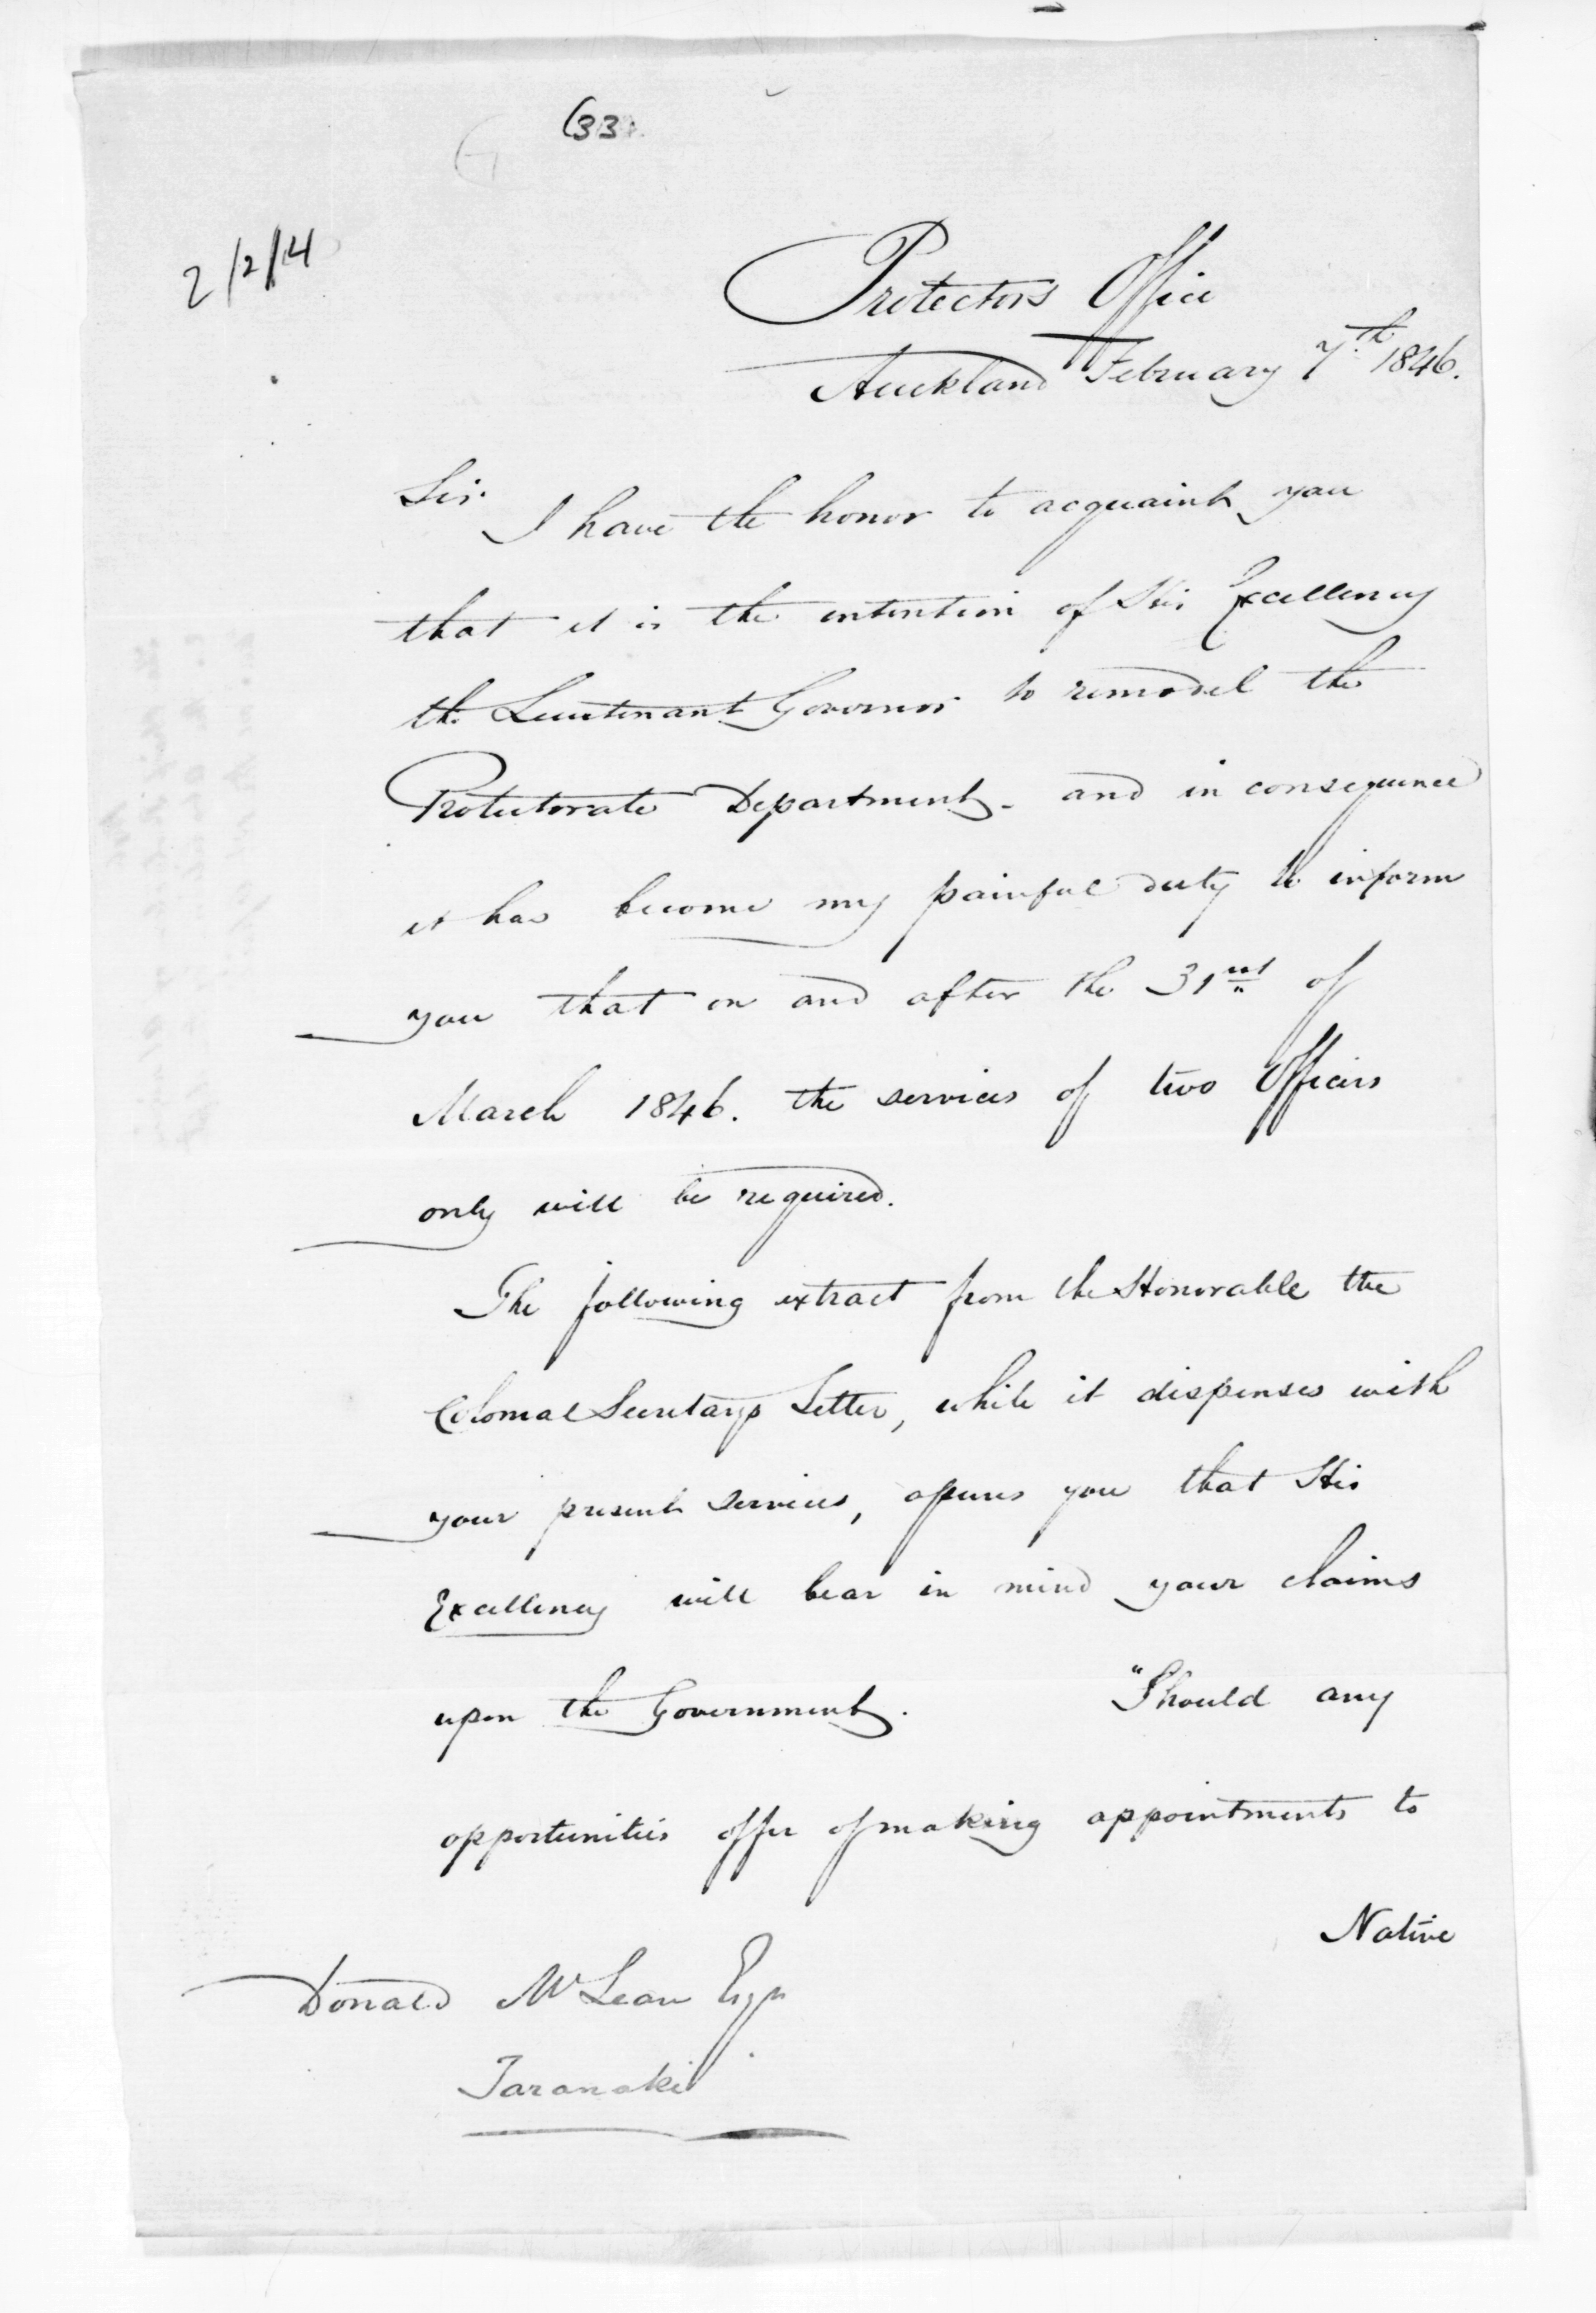 (33
2/2/14
Protectors Office
Auckland February 7th 1846.
Sir.
I have the honor to acquaint you
that it is the intention of His Excellency
the Lieutenant Governor to remodel the
Protectorate Department - and in consequence
it has become my painful duty to inform
you that on and after the 31st of
March 1846. the services of two Officers
only will be required.
The following extract from the Honorable the
Colonial Secretarys Letter, while it dispenses with
your present services, assures you that His
Excellency will bear in mind your claims
upon the Government. "Should any
opportunities offer of making appointments to
Native
Donald McLean Esqr
Taranaki